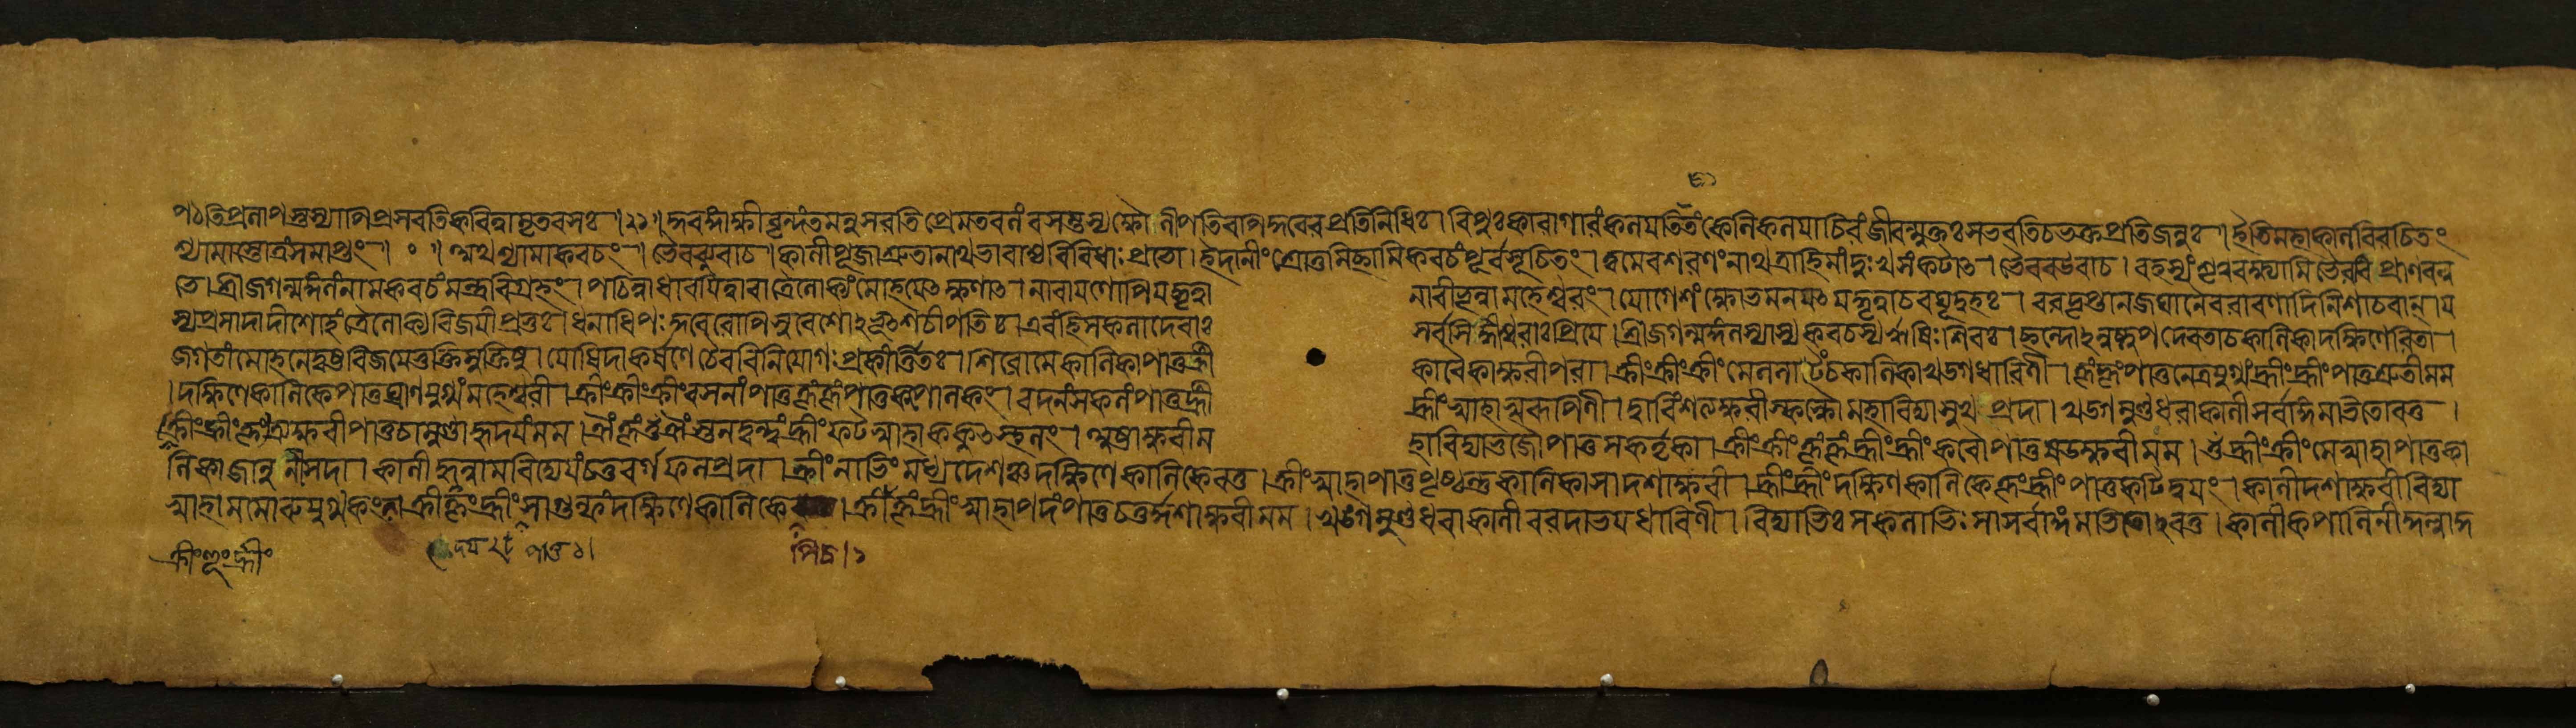 পঠতি প্রলাপস্তস্যাপি প্রসরতি কবিত্বামৃতরসঃ ॥২২॥ কুরঙ্গাক্ষীবৃন্দং তমনুসরতি প্রেমতরলং বসস্তস্য ক্ষৌণীপতিরপি কুবেরপ্রতিনিধিঃ। রিপুঃ কারাগারং কলয়তি তং কেলিকলয়া চিরং জীবন্মুক্তঃ স ভবতি চ ভক্তঃ প্রতিজনুঃ। ইতি মহাকালবিরচিতং
শ্যামাস্তোত্রং সমাপ্তং। ঃ । অথ শ্যামাকবচং। ভৈরব্যুবাচ। কালীপূজা শ্রুতা নাথ ভাবাশ্চ বিবিধাঃ প্রভো। ইদানীং শ্রোতুমিচ্ছামি কবচং পূর্ব্বসূচিতং। ত্বমেব শরণং নাথ ত্রাহি মাং দুঃখসঙ্কটাৎ। ভৈরব উবাচ। রহস্যং শৃণু বক্ষ্যামি ভৈরবি প্রাণবল্ল
ভে। শ্রীজগন্মঙ্গলং নাম কবচং মন্ত্রবিগ্রহং। পঠিত্বা ধারয়িত্বা বা ত্রৈলোক্যং মোহয়েৎ ক্ষণাৎ। নারায়ণোপি যদ্ধৃত্বা নারী ভূত্বা মহেশ্বরং। যোগেশং ক্ষোভমনয়ৎ যদ্ধৃত্বা চ রঘূদ্বহঃ। বরদৃপ্তান জঘানৈব রাবণাদিনিশাচরান্। য
স্য প্রসাদাদীশোহং ত্রৈলোক্যবিজয়ী প্রভুঃ। ধনাধিপঃ কুবেরোপি সুরেশোঽভূৎ শচীপতিঃ। এবং হি সকলা দেবাঃ সর্ব্বসিদ্ধীশ্বরাঃ প্রিয়ে। শ্রীজগন্মঙ্গলস্যাস্য কবচস্য ঋষিঃ শিবঃ। ছন্দোঽনুষ্টুপ দেবতা চ কালিকা দক্ষিণেরিতা।
জগতাং মোহনে দুষ্টবিজয়ে ভুক্তিমুক্তিষু। যোষিদাকর্ষণে চৈব বিনিয়োগঃ প্রকীর্ত্তিতঃ। শিরো মে কালিকা পাতু ক্রীঁ কারৈকাক্ষরী পরা। ক্রীং ক্রীং ক্রীং মে ললাটঞ্চ কালিকা খড়্গধারিণী। হূং হূং পাতু নেত্রযুগ্মং হ্রীং হ্রীং পাতু শ্রুতী মম
। দক্ষিণে কালিকে পাতু ঘ্রাণযুগ্মং মহেশ্বরী। ক্রীং ক্রীং ক্রীং রসনাং পাতু হূং হূং পাতু কপোলকং। বদনং সকলং পাতু হ্রীঁ হ্রীং স্বাহা স্বরূপিণী। দ্বাবিংশত্যক্ষরী স্কন্ধৌ মহাবিদ্যা সুখপ্রদা। খড়্গমুণ্ডধরা কালী সর্ব্বাঙ্গমভিতোবতু।
ক্রীং হ্রীং হূং ত্র্যক্ষরী পাতু চামুণ্ডা হৃদয়ং মম। ঐং হূং ওঁ ঐং স্তনদ্বন্দ্বং হ্রীং ফট্ স্বাহা ককুৎস্থলং। অষ্টাক্ষরী মহাবিদ্যা ভুজৌ পাতু সকর্তৃকা। ক্রীং ক্রীং হূং হূং হ্রীং হ্রীং করৌ পাতু ষড়ক্ষরী মম। ওঁ হ্রীং ক্রীং মে স্বাহা পাতু কা
লিকা জানুনী সদা। কালী হৃন্নামবিদ্যেয়ং চতুবর্গফলপ্রদা। ক্রীং নাভিং মধ্যদেশঞ্চ দক্ষিণে কালিকেবতু। ক্রীং স্বাহা পাতু পৃষ্ঠন্তু কালিকা সা দশাক্ষরী। হ্রীং হ্রীং দক্ষিণে কালিকে হূং হ্রীং পাতু কটিদ্বয়ং। কালী দশাক্ষরী বিদ্যা
স্বাহা মামোরুযুগ্মকং। ক্রীঁ হূং হ্রীং দক্ষিণে কালিকে । ক্রীঁ হূং হ্রীং স্বাহা পদং পাতু চতুর্দ্দশাক্ষরী মম। খড়্গমুণ্ডধরা কালী বরদাভয়ধারিণী। বিদ্যাভিঃ সকলাভিঃ সা সর্ব্বাঙ্গমভিতোঽবতু। কালী কপালিনী কুল্লা কু